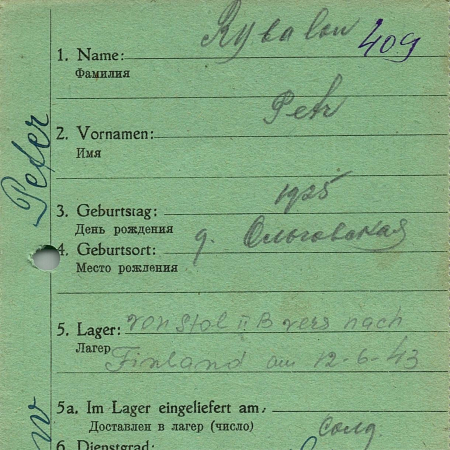 Rybalow 409
1. Name:
Фамилия
Petr
2. Vornamen:
Имя
Peter
1925
3. Geburtstag:
День рождения
д. Ольговская
4. Geburtsort:
Место рождения
5. Lager: von Stal II B vers nach
Лагер Finland am 12-6-43
5a. Im Lager eingeliefert am:
Доставлен в лагер (число)
солд.
6. Dienstgrad: